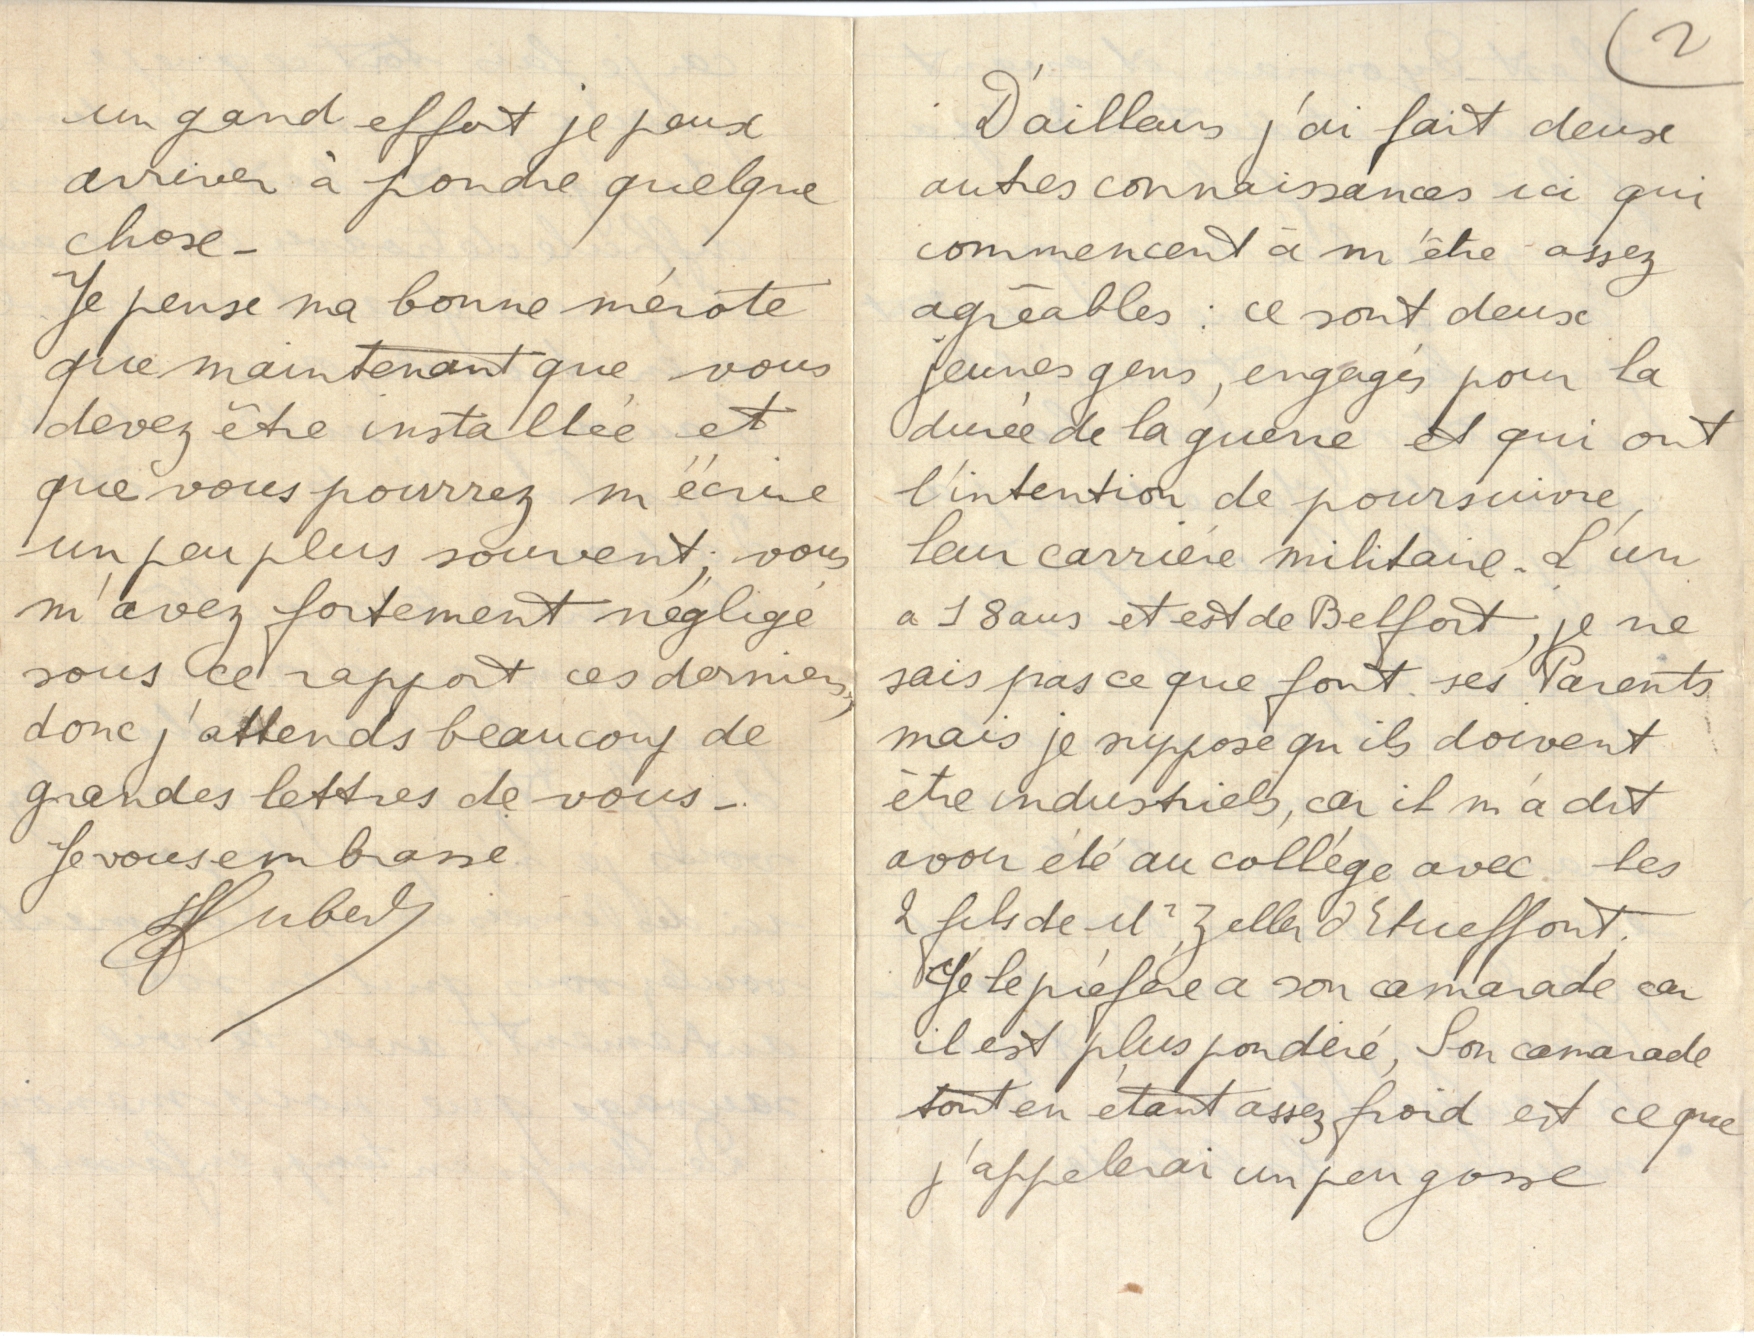 un gand effort je peux
arriver à pondre quelque
chose -
Je pense ma bonne mérote
que maintenant que vous
devez être installée et
que vous pourrez m'écrire
un peu plus souvent; vous
m'avez fortement négligé
sous ce rapport ces derniers,
donc j'attends beaucoup de
grandes lettres de vous -
Je vous embrasse
Hubert
2
D'ailleurs j'ai fait deux
autres connaissances ici qui
commencent à m'être assez
agréables : ce sont deux
jeunes gens, engagés pour la
durée de la guerre et qui ont
l'intention de poursuivre
leur carrière militaire. L'un
a 18 ans et est de Belfort, je ne
sais pas ce que font ses Parents
mais je suppose qu'ils doivent
être industriels, car il m'a dit
avoir été au collège avec les
2 fils de Mr Zeller d'Etueffont.
Je le préfère a son camarade car
il est plus pondéré, Son camarade
tout en étant assez froid est ce que
j'appelerai un peu gosse